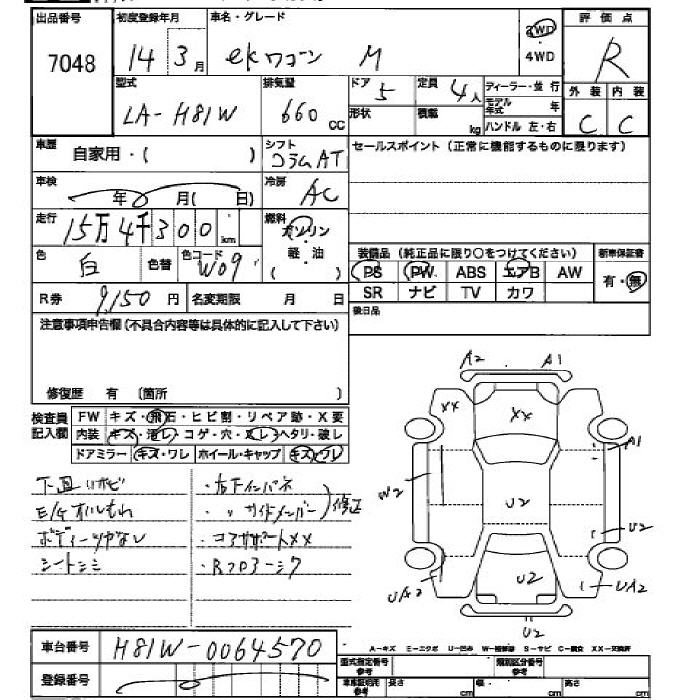 出品番号 初度登録年月 車名・グレード 2WD ・4WD 評価点
7048 14年 3月 ekワゴン M R
型式 排気量 ドア 定員 ディーラー・並行 外装 内装
LA-H81W 660cc 5 4人 モデル年式 年 C C
形状 積載 kg ハンドル 左・右
車歴 自家用・( ) シフト コラムAT セールスポイント(正常に機能するものに限ります)
車検 年 月( 日) 冷房 AC
走行 15万4千300km 燃料 ガソリン
軽・油
( )
色 白 色替 色コード W09 装備品(純正品に限り○をつけてください) 新車保証書
PS PW ABS エアB AW 有・無
SR ナビ TV カワ
R券 9,150円 名変期限 月 日 後日品
注意事項申告欄(不具合内容等は具体的に記入して下さい)
修復歴 有 〔箇所 〕
検査員記入欄 FW キズ・飛石・ヒビ割・リペア跡・X要
内装 キズ・汚レ・コゲ・穴・スレ・ヘタリ・破レ
ドアミラー キズ・ワレ ホイール・キャップ キズ・ワレ
下廻リサビ ・右Fインパネ
E/Gオイルもれ ・〃サイドメンバー 修正
ボディーツヤなし ・コアサポートXX
シートシミ ・Rフロアーシワ
A2 A1
XX XX
A1
W2
U2
U2
UA2 U2 UA2
U2
車台番号 H81W-0064570
A-キズ E-エクボ U-凹み W-補修跡 S-サビ C-腐食 XX-交換済
登録番号
型式指定番号 参考 類別区分番号 参考
車庫証明用 参考 長さ cm 幅 cm 高さ cm